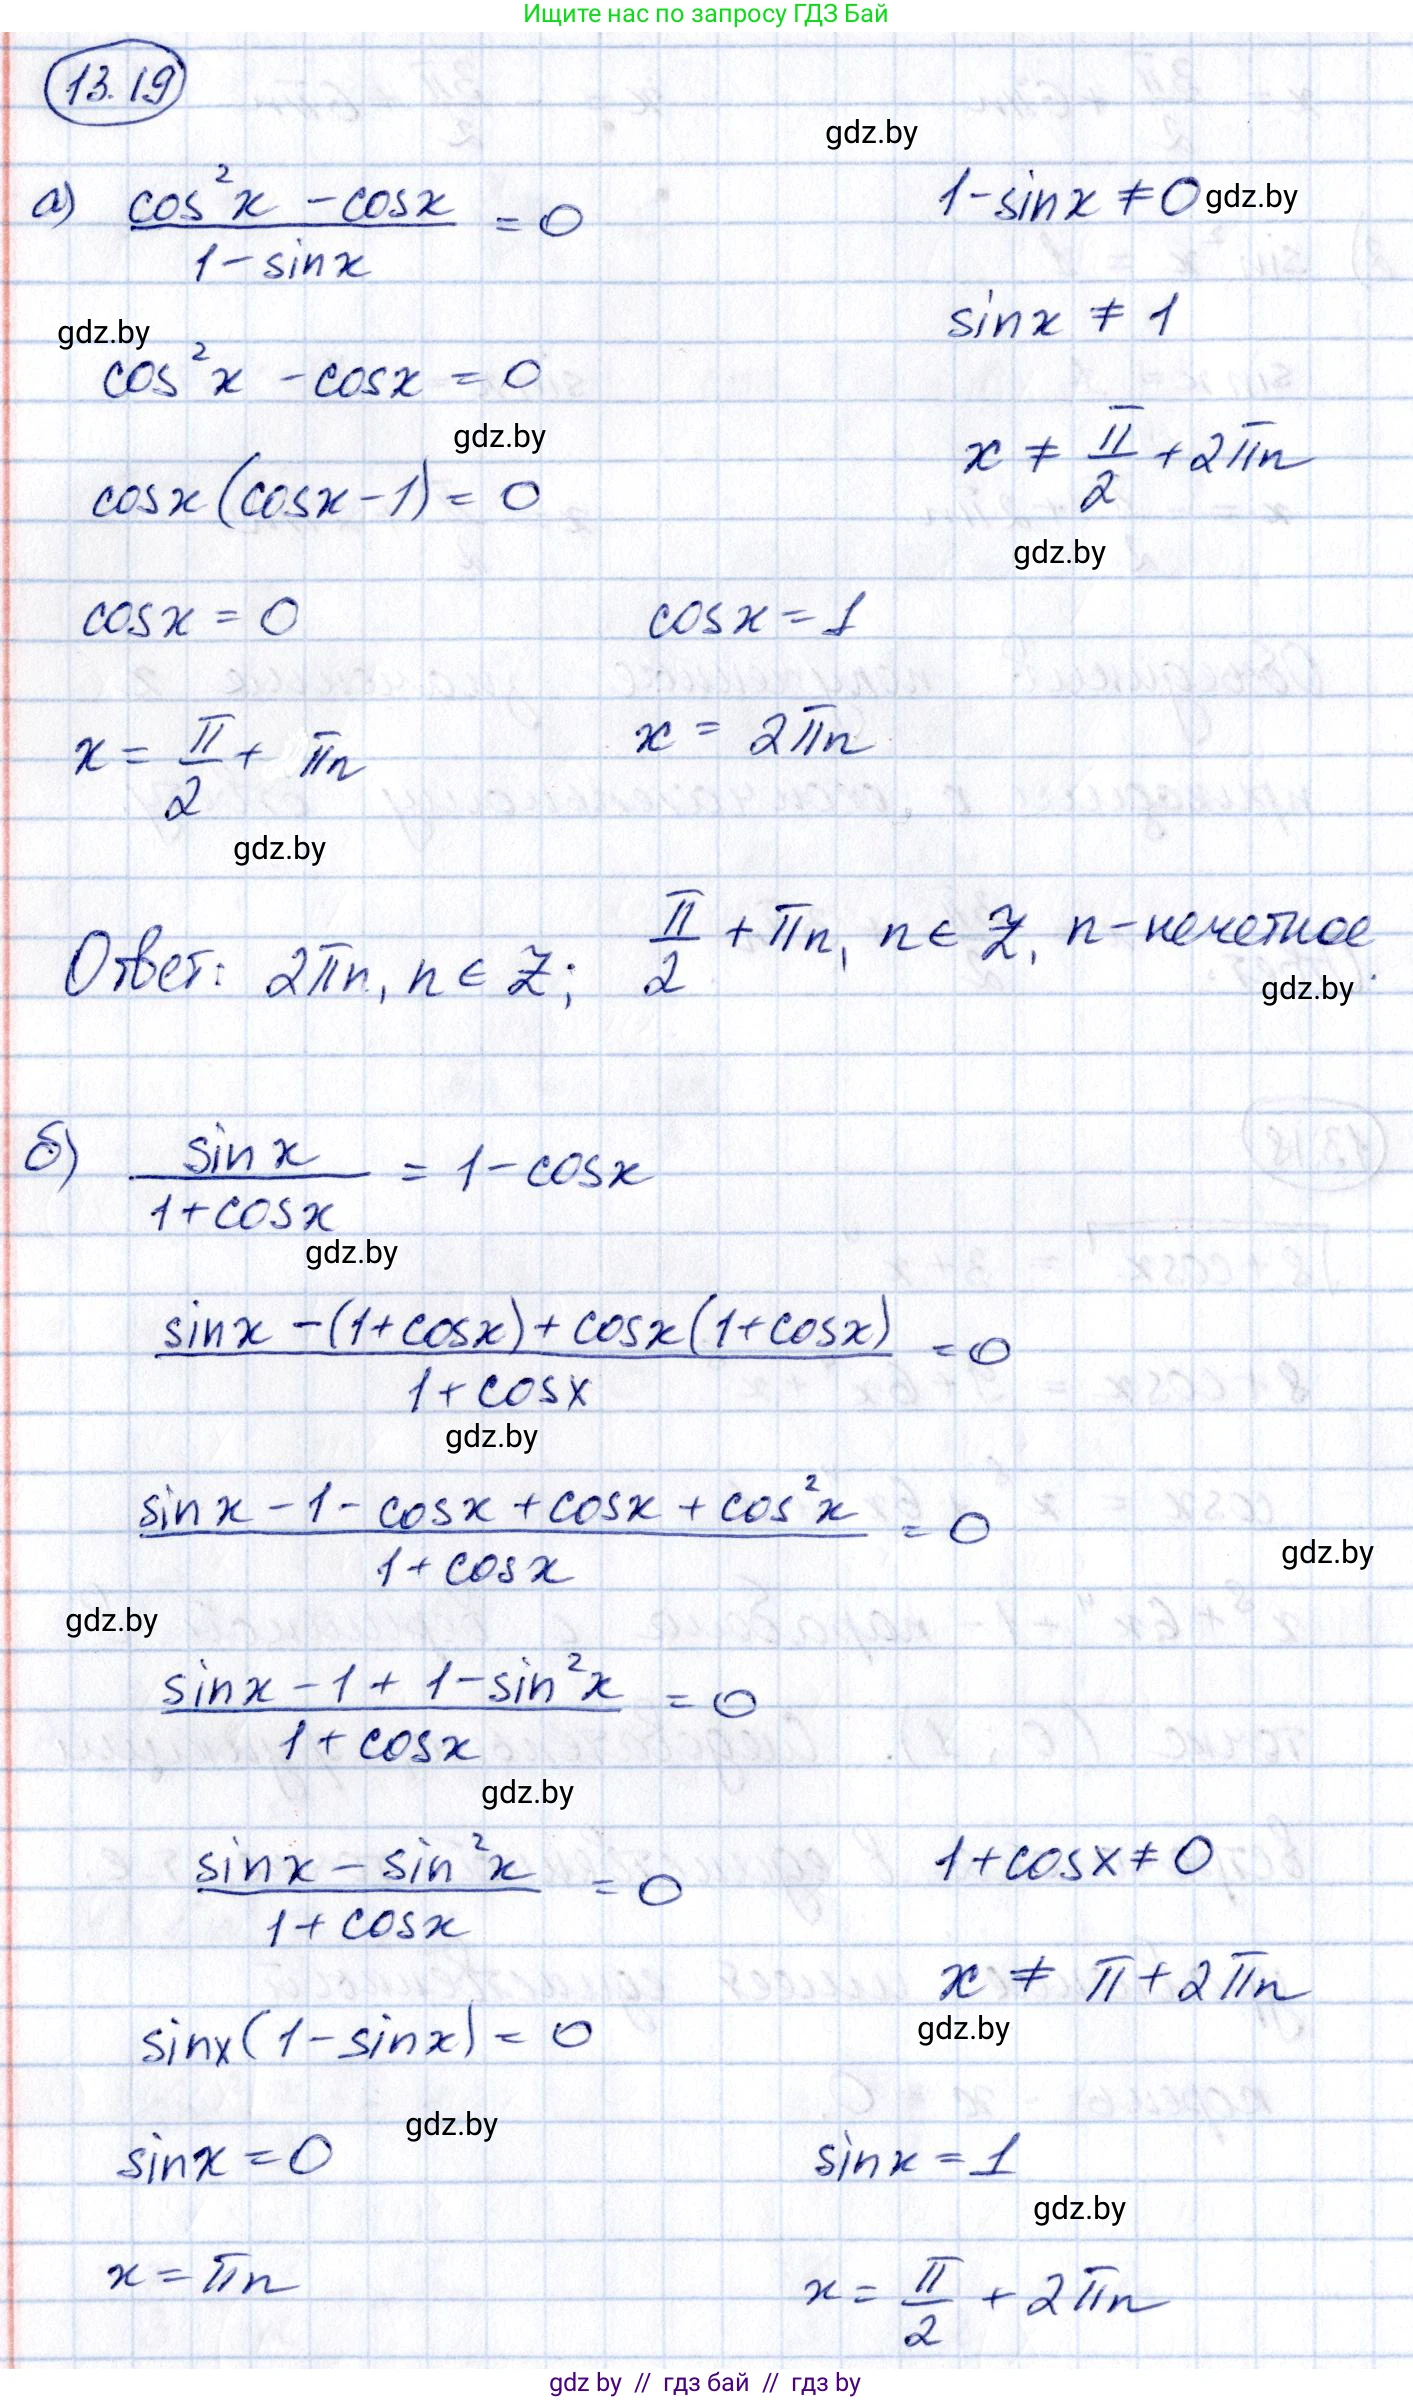 Ищите нас по запросу ГДЗ Бай
13.19
gdz.by
а) (cos²x - cosx)/(1 - sinx) = 0
1 - sinx ≠ 0 gdz.by
sinx ≠ 1
gdz.by
cos²x - cosx = 0
gdz.by
x ≠ π/2 + 2πn
cosx(cosx - 1) = 0
gdz.by
cosx = 0
cosx = 1
x = π/2 + πn
x = 2πn
gdz.by
Ответ: 2πn, n ∈ Z; π/2 + πn, n ∈ Z, n - нечетное.
gdz.by
б) sinx/(1 + cosx) = 1 - cosx
gdz.by
(sinx - (1 + cosx) + cosx(1 + cosx))/(1 + cosx) = 0
gdz.by
(sinx - 1 - cosx + cosx + cos²x)/(1 + cosx) = 0
gdz.by
gdz.by
(sinx - 1 + 1 - sin²x)/(1 + cosx) = 0
gdz.by
(sinx - sin²x)/(1 + cosx) = 0
1 + cosx ≠ 0
x ≠ π + 2πn
gdz.by
sinx(1 - sinx) = 0
gdz.by
sinx = 0
sinx = 1
gdz.by
x = πn
x = π/2 + 2πn
gdz by // гдз бай // гдз by